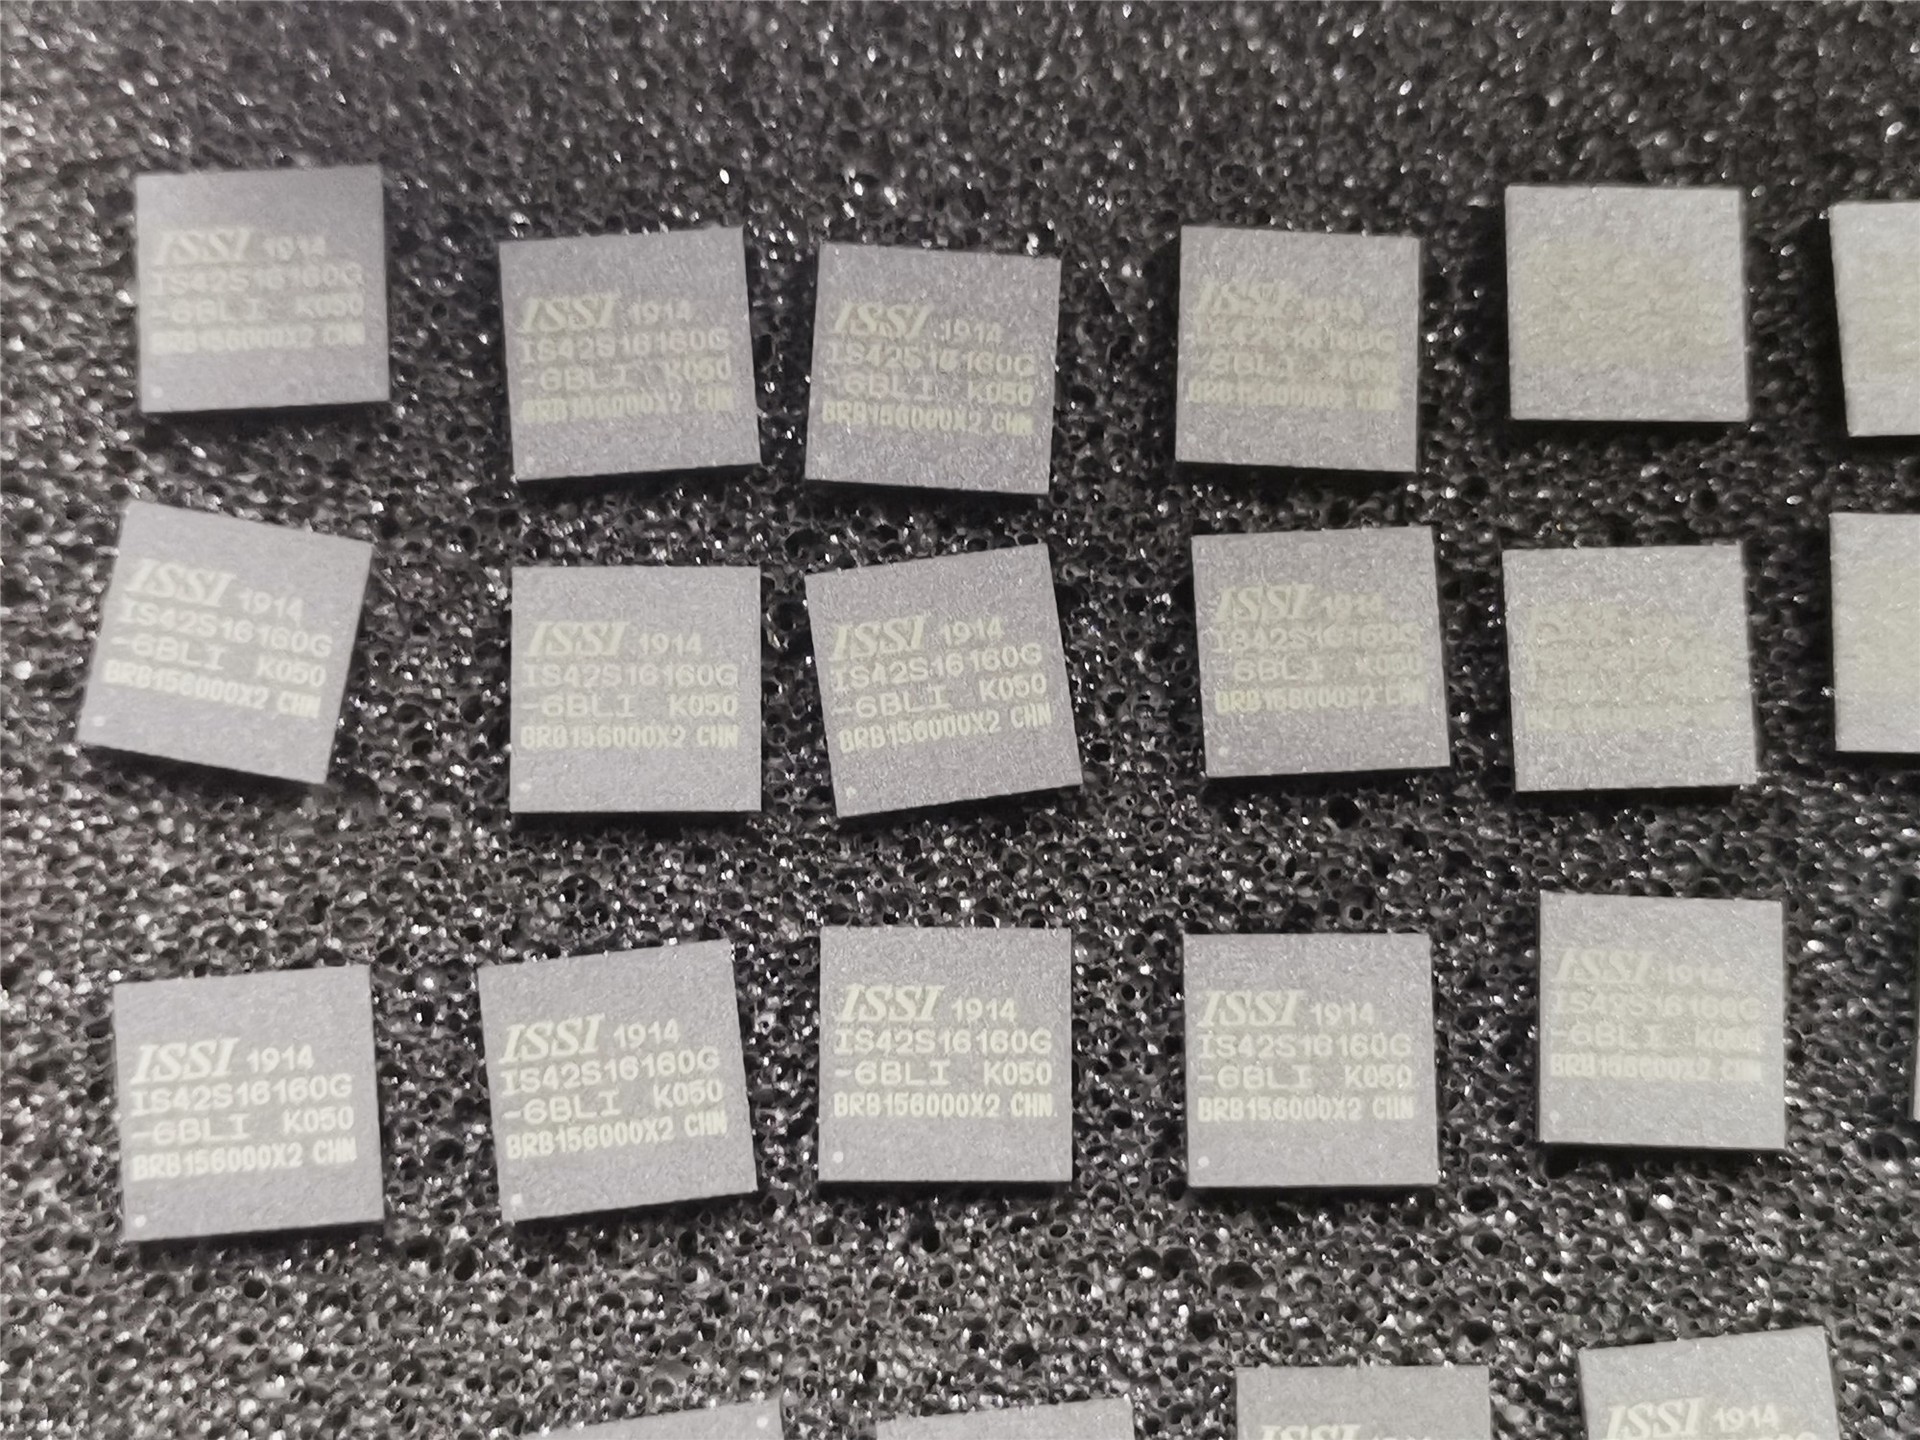 ISSI 1914
IS42S16160G
-6BLI K050
BRB156000X2 CHN
ISSI 1914
IS42S16160G
-6BLI K050
BRB156000X2 CHN
ISSI 1914
IS42S16160G
-6BLI K050
BRB156000X2 CHN
ISSI 1914
IS42S16160G
-6BLI K050
BRB156000X2 CHN
ISSI 1914
IS42S16160G
-6BLI K050
BRB156000X2 CHN
ISSI 1914
IS42S16160G
-6BLI K050
BRB156000X2 CHN
ISSI 1914
IS42S16160G
-6BLI K050
BRB156000X2 CHN
ISSI 1914
IS42S16160G
-6BLI K050
BRB156000X2 CHN
ISSI 1914
IS42S16160G
-6BLI K050
BRB156000X2 CHN
ISSI 1914
IS42S16160G
-6BLI K050
BRB156000X2 CHN
ISSI 1914
IS42S16160G
-6BLI K050
BRB156000X2 CHN
ISSI 1914
IS42S16160G
-6BLI K050
BRB156000X2 CHN
ISSI 1914
IS42S16160G
-6BLI K050
BRB156000X2 CHN
ISSI
ISSI 1914